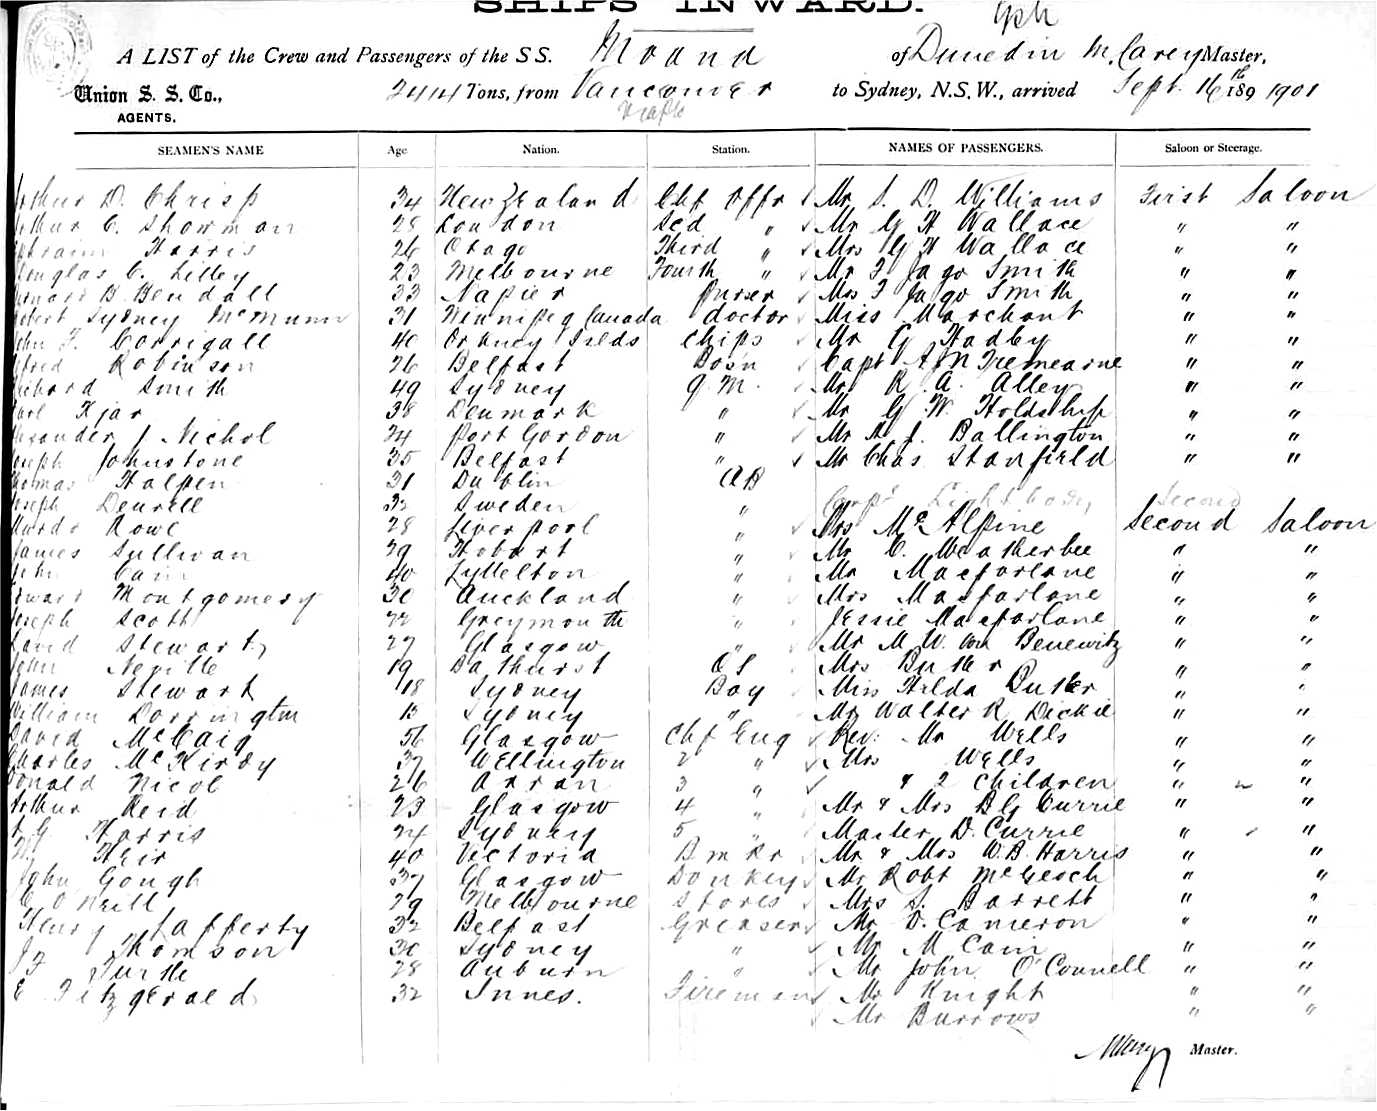 SHIPS INWARD.
A LIST of the Crew and Passengers of the S S. Moana of Dunedin M. Carey Master,
Union S. S. Co., 2414 Tons, from Vancouver to Sydney, N.S.W., arrived Sept. 16th 189 1901
AGENTS.
SEAMEN'S NAME Age Nation. Station. NAMES OF PASSENGERS. Saloon or Steerage.
Arthur D. Chrisp 34 New Zealand Chf Offr Mr S. D. Williams First Saloon
Arthur C. Showman 28 London Scd " Mr G H Wallace " "
Ephraim Harris 26 Otago Third " Mrs G H Wallace " "
Douglas C. Lilley 23 Melbourne Fourth " Mr F Jago Smith " "
Bernard B. Bendall 33 Napier Purser Mrs F Jago Smith " "
Robert Sydney McMunn 31 Winnipeg Canada doctor Miss Marchant " "
John F. Corrigall 40 Orkney Islds Chips Mr G Hadby " "
Alfred Robinson 26 Belfast Bos'n Capt A J N Tremearne " "
Richard Smith 49 Sydney Q. M. Mr R. A. Alley " "
Karl Kjar 38 Denmark " Mr G. W. Holdship " "
Alexander J Nichol 24 Port Gordon " Mr A. J. Ballington " "
Joseph Johnstone 35 Belfast " Mr Chas Stanfield " "
Thomas Halpen 31 Dublin AB
Joseph Deurell 32 Sweden " Lightbody Second
Murdo Rowe 28 Liverpool " Mrs McAlpine Second Saloon
James Sullivan 29 Hobart " Mr C. Weatherbee " "
John Cain 40 Lyttelton " Mr Macfarlane " "
Edward Montgomery 36 Auckland " Mrs Macfarlane " "
Joseph Scott 22 Greymouth " Jessie Macfarlane " "
David Stewart 27 Glasgow " Mr M. W. von Benewitz " "
John Neville 19 Bathurst OS Mrs Butler " "
James Stewart 18 Sydney Boy Miss Hilda Butler " "
William Dorrington 15 Sydney " Mr Walter R Dickie " "
David McCaig 56 Glasgow Chf Eng Rev. Mr Wells " "
Charles McKirdy 37 Wellington 2 " Mrs Wells " "
Donald Nicol 26 Arran 3 " & 2 Children " "
Arthur Reid 23 Glasgow 4 " Mr & Mrs B G Currie " "
Harris 24 Sydney 5 " Master D. Currie " "
Heir 40 Victoria Bmkr Mr & Mrs W. B. Harris " "
John Gough 37 Glasgow Donkey Mr Robt McGeoch " "
C O'Neill 29 Melbourne Stores Mrs S. Barrett " "
Henry Lafferty 32 Belfast Greaser Mr D. Cameron " "
Thomson 30 Sydney " Mr M Cain " "
Turtle 28 Auburn " Mr John O'Connell " "
E Fitzgerald 32 Innes. Fireman Mr Knight " "
Mr Burrows " "
MCarey Master.